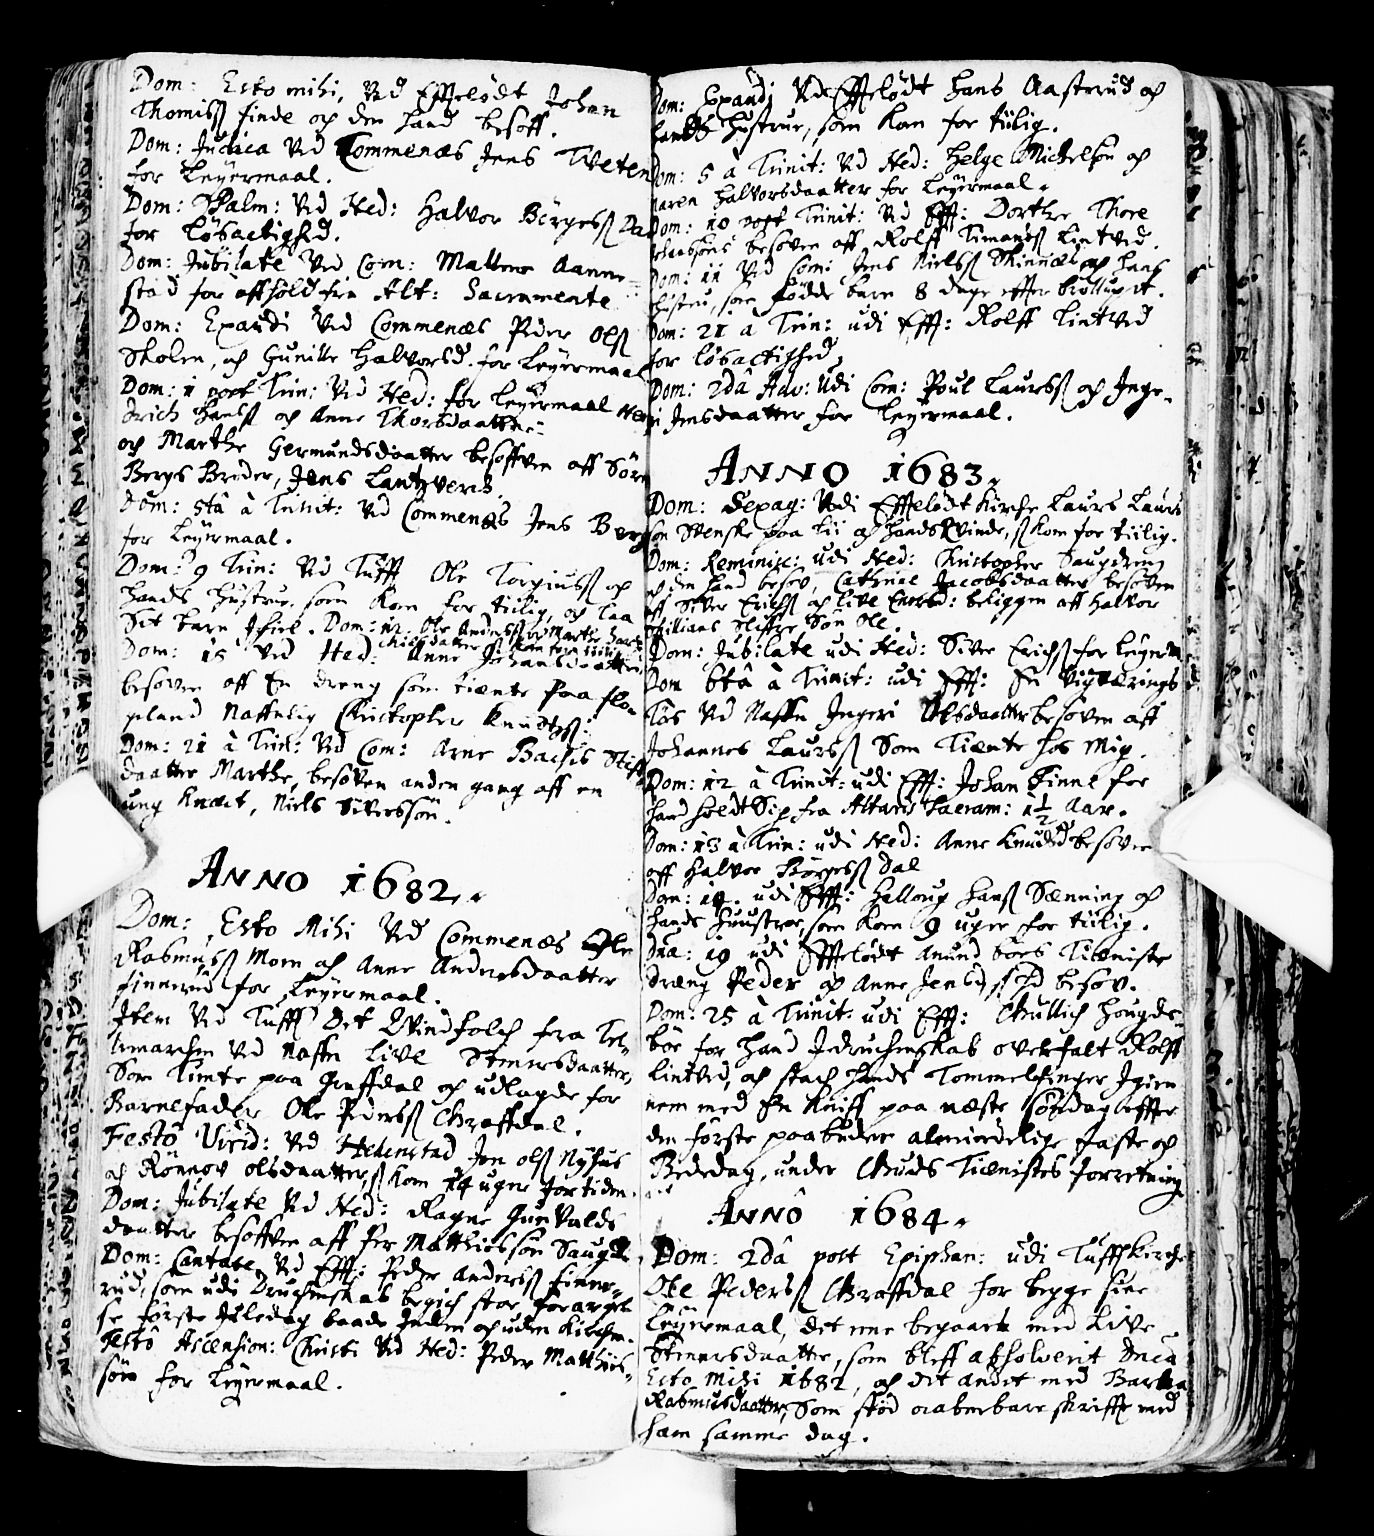 Dom: Esto mihi, Ved Efftelødt Johan
Thomiss finde och den hand besoff.
Dom: Judica Ved Commenæs Jens Tveten
for Leyermaal.
Dom: Palm: Ved Hed: Halvor Børgess Dal
for Løsactighed.
Dom: Jubilate Ved Com: Mattens Aanne-
stad for affhold fra Alt: Sacramente
Dom: Exaudi Ved Commenæs Peder Olss
Skolen, och Gunille Halvorsd. for Leyermaal
Dom: 1 post Trin: Ved Hed: for Leyermaal Hen
drich Hanss och Anne Thorsdaatter
och Marthe Germundsdaatter besoffven aff Søren
Bergs Broder, Jens Lantzverck.
Dom: 5ta à Trinit: Ved Commenæs Jens Berg
for Leyermaal.
Dom: 9 Trin: Ved Tufft Ole Torgiuss och
hands hustrue. som kom for tiilig, och laa
Sit barn Ihiel. Dom: 12. Ole Anderss och Marthe
Dom: 15 Ved Hed: Anne Johansdaatter
besoven aff En dreng som tiente paa Flo
gland Naffnlig Christopher Knudtss:
Dom: 21 à Trin: Ved Com: Arne Bachis Stiff
daatter Marthe, besoven anden gang aff en
ung Knæct, Niels Siverssøn.
ANNO 1682.
Dom: Esto Mihi Ved Commenæs Ole
Rasmuss Moen och Anne Andersdaatter
finnerud for Leyermaal.
Item Ved Tufft Det Qvindfolch fra Tel-
lemarchen Ved Naffn Live Stenersdaatter,
Som tiente paa Graffdal och udlagde for
Barnefader Ole Pederss Graffdal.
Festo Virid: Ved Hedenstad Jon olss Nyhus
och Rønnov olsdaatter, s kom 14 uger for tiden.
Dom: Jubilate Ved Hed: Ragne Gunvalds
daatter besoffven aff Per Matthissøn Saugd
Dom: Cantate Ved Efft: Peder Anderss Finne-
rud, som udi Druchenskab begich stor forargel
se første Juledag baade Inden och uden Kirchen.
Festo Ascension: Christi Ved Hed: Peder Matthis-
søn for Leyermaal.
Dom: Exaudi Vdi Efftelødt Hans Aasterud och
hands hustrue, som kom for tiilig.
Dom: 5 à Trinit: Ved Hed: Helge Michelsøn och
Karen Halvorsdaatter for Leyermaal.
Dom: 10 post Trinit: Ved Efft: Dorthe Thore
besoven aff Rolff Simenss Lintved.
Dom: 11 Ved Com: Jens Nielss Skinnæs och hans
hustru, som fødde barn 8 dage effter brøllupet.
Dom: 21 à Trin: udi Efft: Rolff Lintved
for løsactighed.
Dom: 2da Adv: Udi Com: Poul Laurss och Inge-
ri Jensdaatter for Leyermaal.
ANNO 1683.
Dom: Sexag: Vdi Efftelødt Kirche Laurs Laurs
søn Stenske paa Lii och hands Kvinde, s kom for tiilig.
Dom: Reminisc: udi Hed: Christopher Saugdreng
och den hand besov, Cathrine Jacobsdaatter besoven
aff Siver Erichs och Live beliggen aff Halvor
Søn Ole.
Dom: Jubilate udi Hed: Siver Erichs for Leyerm
Dom 6ta à Trinit: udi Efft: En
Tøs Ved Naffn Ingeri Olsdaatter besoven aff
Johannes Laurss Som Tiente hos Mig.
Dom: 12 à Trinit: udi Efft: Johan Finne for
hand holdt Sig fra Altarens Sacram: 1½ Aar.
Dom: 13 à Trin: udi Hed: Anne Knudsd besoven
aff Halvor Børgess Dal
Dom: 14. udi Efft: Helloug Hanss Sænning och
hands huustroe, som kom 9 uger for tiilig.
Dca: 19 udi Efftelødt Anund børs Tieniste
dreng Peder och Anne Jensd, s hd besov.
Dom: 25 à Trinit: udi Efft: Gullich Hougde-
bøe for hand Jdruchenskab overfalt Rolff
Lintved, och stach hands Tommelfinger Igien
nem med En kniff paa næste Søndag effter
den første paabudne almindelige faste och
Bededag, under Guds Tienistes forretning
ANNO 1684.
Dom: 2da post Epiphan: udi Tufftkirche
Ole Pederss Graffdal for begge sine
Leyermaal, det ene begaaet med Live
Stenersdaatter, som bleff absolverit Dnica
Esto Mihi 1682, och det andet med Barbra
Rasmusdaatter, Som stod aabenbare skrifft med
ham samme dag.